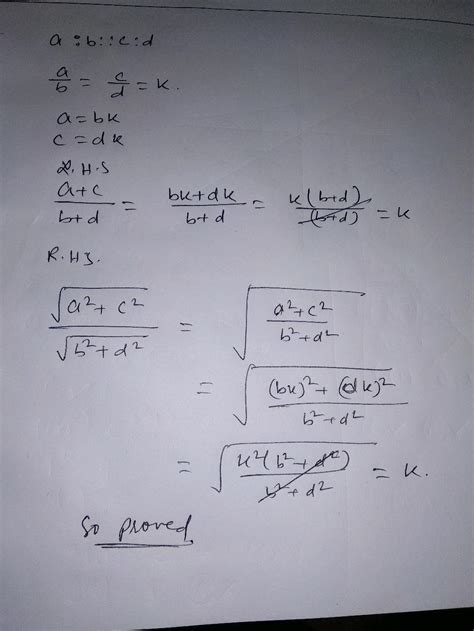 a:b::c:d
a/b = c/d = k.
a = bk
c = dk
L.H.S
(a+c)/(b+d) = (bk+dk)/(b+d) = k(b+d)/(b+d) = k
R.H.S.
√(a²+c²)/√(b²+d²) = √((a²+c²)/(b²+d²))
= √(((bk)²+(dk)²)/(b²+d²))
= √(k²(b²+d²)/(b²+d²)) = k.
So proved